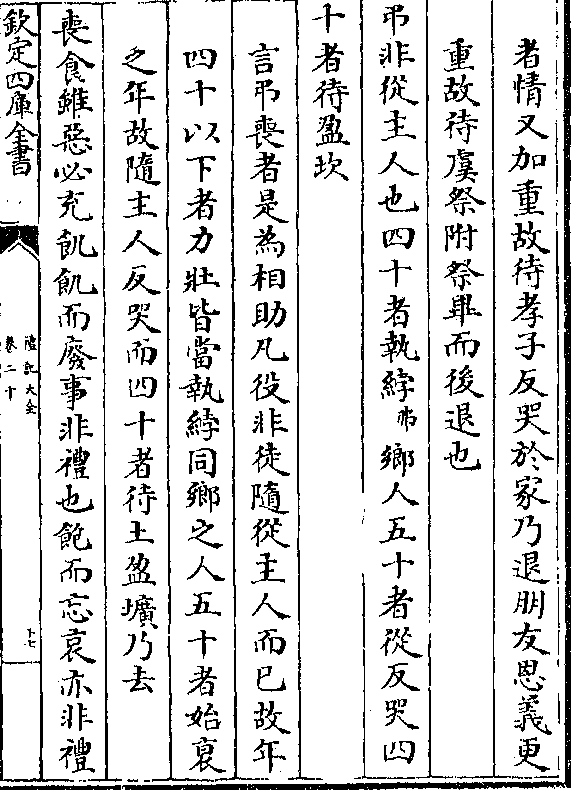 者情又加重故待孝子反哭於家乃退朋友恩義更
重故待虞祭附祭畢而後退也
弔非從主人也四十者執綍弗鄉人五十者從反哭四
十者待盈坎
言弔喪者是為相助凡役非徒隨從主人而已故年
四十以下者力壯皆當執綍同鄉之人五十者始衰
之年故隨主人反哭而四十者待土盈壙乃去
喪食雖惡必充飢飢而廢事非禮也飽而忘哀亦非禮
欽定四庫全書
禮記大全
卷二十
十七